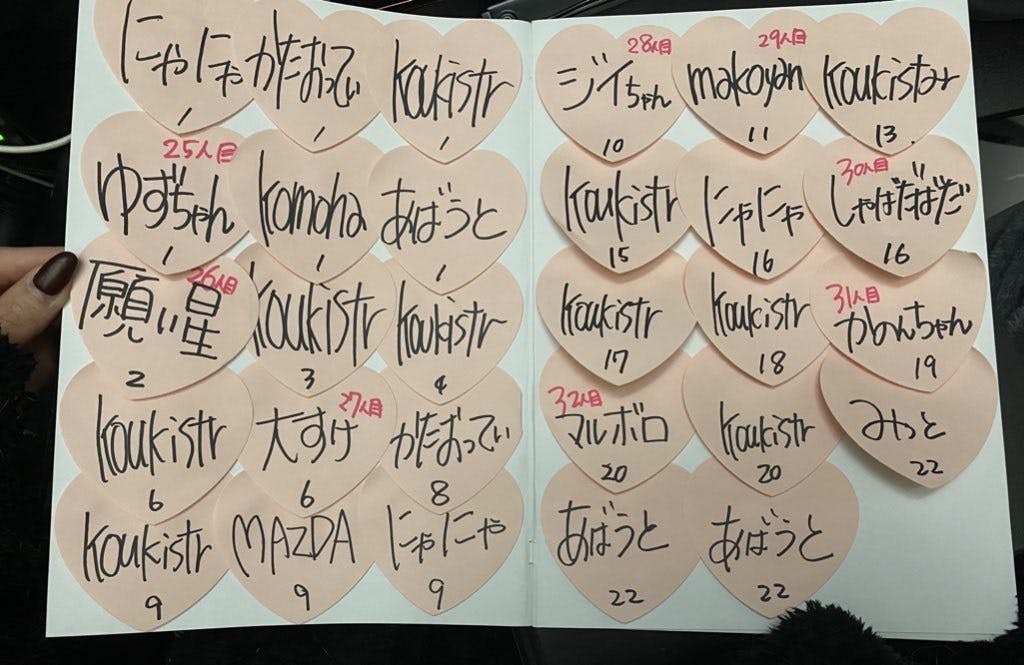 にゃにゃ
1
かたおってぃ
1
koukistr
1
25人目
ゆずちゃん
1
komoha
1
あばうと
1
26人目
願い星
2
koukistr
3
koukistr
4
koukistr
6
27人目
大すけ
6
かたおってぃ
8
koukistr
9
MAZDA
9
にゃにゃ
9
28人目
ジイちゃん
10
29人目
makoyan
11
koukistar
13
koukistr
15
にゃにゃ
16
30人目
しゃばだばだ
16
koukistr
17
koukistr
18
31人目
かのんちゃん
19
32人目
マルボロ
20
koukistr
20
みっと
22
あばうと
22
あばうと
22